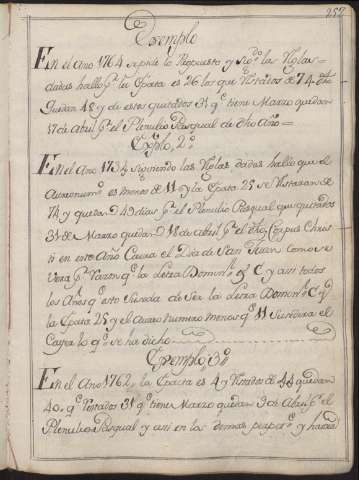 257
Exemplo
En el Año 1764 supdo lo Propuesto y sigdo las Reglas
dadas hallo qe la Epacta es 26 los que Restados de 74 dhs
quedan 48 y de estos quitados 31 qe tiene Marzo quedan
17 de Abril pa el Plenilunio Pasqual de dho Año=
Exemplo, 2o
En el Año 1734 Siguiendo las Reglas dadas hallo que el
Aureo numo es menos de 11 y la Epacta 25 se Restaran de
74 y quedan 49 dias pa el Plenilunio Pasqual que quitados
31 de Marzo quedan 18 de Abril pa el dho, Corpus Chris
ti en este Año Caera el Dia de San Juan como se
Vera pr Razon qe la Letra Domினl es C y asi todos
los Años qe esto suceda de Ser la Letra Domnl C y
la Epacta 25 y el Aureo numero menos qe 11 Sucedera el
Caer lo qe se ha dicho
Exemplo 3o
En el Año 1762, la Epacta es 4 y Restados de 44 quedan
40, qe Restados 31 qe tiene Marzo quedan 9 de Abril pa el
Plenilunio Pasqual y asi en los demas